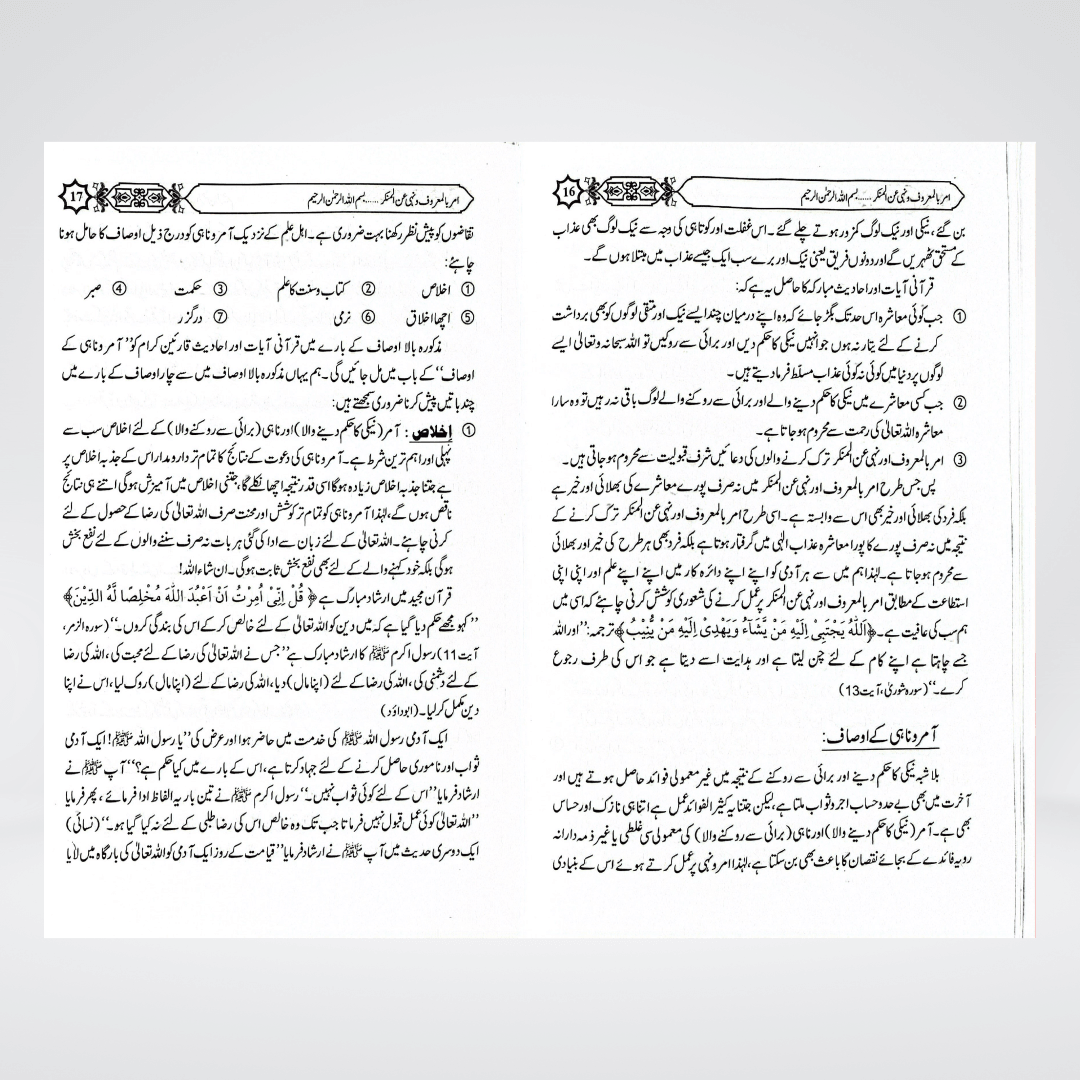 امر بالمعروف ونہی عن المنکر......بسم اللہ الرحمٰن الرحیم
16
بن گئے، نیکی اور نیک لوگ کمزور ہوتے چلے گئے۔ اس غفلت اور کوتاہی کی وجہ سے نیک لوگ بھی عذاب
کے مستحق ٹھہریں گے اور دونوں فریق یعنی نیک اور برے سب ایک جیسے عذاب میں مبتلا ہوں گے۔
قرآنی آیات اور احادیث مبارکہ کا حاصل یہ ہے کہ:
① جب کوئی معاشرہ اس حد تک بگڑ جائے کہ وہ اپنے درمیان چند ایسے نیک اور متقی لوگوں کو بھی برداشت
کرنے کے لئے تیار نہ ہوں جو انہیں نیکی کا حکم دیں اور برائی سے روکیں تو اللہ سبحانہ وتعالیٰ ایسے
لوگوں پر دنیا میں کوئی نہ کوئی عذاب مسلط فرما دیتے ہیں۔
② جب کسی معاشرے میں نیکی کا حکم دینے والے اور برائی سے روکنے والے لوگ باقی نہ رہیں تو وہ سارا
معاشرہ اللہ تعالیٰ کی رحمت سے محروم ہو جاتا ہے۔
③ امر بالمعروف اور نہی عن المنکر ترک کرنے والوں کی دعائیں شرف قبولیت سے محروم ہو جاتی ہیں۔
پس جس طرح امر بالمعروف اور نہی عن المنکر میں نہ صرف پورے معاشرے کی بھلائی اور خیر ہے
بلکہ فرد کی بھلائی اور خیر بھی اس سے وابستہ ہے۔ اسی طرح امر بالمعروف اور نہی عن المنکر ترک کرنے کے
نتیجہ میں نہ صرف پورے کا پورا معاشرہ عذاب الٰہی میں گرفتار ہوتا ہے بلکہ فرد بھی ہر طرح کی خیر اور بھلائی
سے محروم ہو جاتا ہے۔ لہٰذا ہم میں سے ہر آدمی کو اپنے اپنے دائرہ کار میں اپنے اپنے علم اور اپنی اپنی
استطاعت کے مطابق امر بالمعروف اور نہی عن المنکر پر عمل کرنے کی شعوری کوشش کرنی چاہئے کہ اسی میں
ہم سب کی عافیت ہے۔ ﴿اَللّٰهُ يَجْتَبِىْ اِلَيْهِ مَنْ يَّشَآءُ وَيَهْدِىْ اِلَيْهِ مَنْ يُّنِيْبُ﴾ ترجمہ: ’’اور اللہ
جسے چاہتا ہے اپنے کام کے لئے چن لیتا ہے اور ہدایت اسے دیتا ہے جو اس کی طرف رجوع
کرے۔‘‘ (سورہ شوریٰ، آیت 13)
آمر و ناہی کے اوصاف:
بلا شبہ نیکی کا حکم دینے اور برائی سے روکنے کے نتیجہ میں غیر معمولی فوائد حاصل ہوتے ہیں اور
آخرت میں بھی بے حد و حساب اجر و ثواب ملتا ہے، لیکن جتنا یہ کثیر الفوائد عمل ہے اتنا ہی نازک اور حساس
بھی ہے۔ آمر (نیکی کا حکم دینے والا) اور ناہی (برائی سے روکنے والا) کی معمولی سی غلطی یا غیر ذمہ دارانہ
رویہ فائدے کے بجائے نقصان کا باعث بھی بن سکتا ہے، لہٰذا امر و نہی پر عمل کرتے ہوئے اس کے بنیادی
امر بالمعروف ونہی عن المنکر......بسم اللہ الرحمٰن الرحیم
17
تقاضوں کو پیش نظر رکھنا بہت ضروری ہے۔ اہل علم کے نزدیک آمر و ناہی کو درج ذیل اوصاف کا حامل ہونا
چاہئے:
① اخلاص ② کتاب و سنت کا علم ③ حکمت ④ صبر
⑤ اچھا اخلاق ⑥ نرمی ⑦ درگزر
مذکورہ بالا اوصاف کے بارے میں قرآنی آیات اور احادیث قارئین کرام کو ’’آمر و ناہی کے
اوصاف‘‘ کے باب میں مل جائیں گی۔ ہم یہاں مذکورہ بالا اوصاف میں سے چار اوصاف کے بارے میں
چند باتیں پیش کرنا ضروری سمجھتے ہیں:
① اِخلاص: آمر (نیکی کا حکم دینے والا) اور ناہی (برائی سے روکنے والا) کے لئے اخلاص سب سے
پہلی اور اہم ترین شرط ہے۔ آمر و ناہی کی دعوت کے نتائج کا تمام تر دارومدار اس کے جذبہ اخلاص پر
ہے جتنا جذبہ اخلاص زیادہ ہوگا اسی قدر نتیجہ اچھا نکلے گا، جتنی اخلاص میں آمیزش ہوگی اتنے ہی نتائج
ناقص ہوں گے، لہٰذا آمر و ناہی کو تمام تر کوشش اور محنت صرف اللہ تعالیٰ کی رضا کے حصول کے لئے
کرنی چاہئے۔ اللہ تعالیٰ کے لئے زبان سے ادا کی گئی ہر بات نہ صرف سننے والوں کے لئے نفع بخش
ہوگی بلکہ خود کہنے والے کے لئے بھی نفع بخش ثابت ہوگی۔ ان شاء اللہ!
قرآن مجید میں ارشاد مبارک ہے ﴿قُلْ اِنِّىْ اُمِرْتُ اَنْ اَعْبُدَ اللّٰهَ مُخْلِصًا لَّهُ الدِّيْنَ﴾
’’کہو مجھے حکم دیا گیا ہے کہ میں دین کو اللہ تعالیٰ کے لئے خالص کر کے اس کی بندگی کروں۔‘‘ (سورہ الزمر،
آیت 11) رسول اکرم ﷺ کا ارشاد مبارک ہے ’’جس نے اللہ تعالیٰ کی رضا کے لئے محبت کی، اللہ کی رضا
کے لئے دشمنی کی، اللہ کی رضا کے لئے (اپنا مال) دیا، اللہ کی رضا کے لئے (اپنا مال) روک لیا، اس نے اپنا
دین مکمل کر لیا۔ (ابوداؤد)
ایک آدمی رسول اللہ ﷺ کی خدمت میں حاضر ہوا اور عرض کی ’’یا رسول اللہ ﷺ! ایک آدمی
ثواب اور ناموری حاصل کرنے کے لئے جہاد کرتا ہے، اس کے بارے میں کیا حکم ہے؟‘‘ آپ ﷺ نے
ارشاد فرمایا ’’اس کے لئے کوئی ثواب نہیں۔‘‘ رسول اکرم ﷺ نے تین بار یہ الفاظ ادا فرمائے، پھر فرمایا
’’اللہ تعالیٰ کوئی عمل قبول نہیں فرماتا جب تک وہ خالص اس کی رضا طلبی کے لئے نہ کیا گیا ہو۔‘‘ (نسائی)
ایک دوسری حدیث میں آپ ﷺ نے ارشاد فرمایا ’’قیامت کے روز ایک آدمی کو اللہ تعالیٰ کی بارگاہ میں لایا